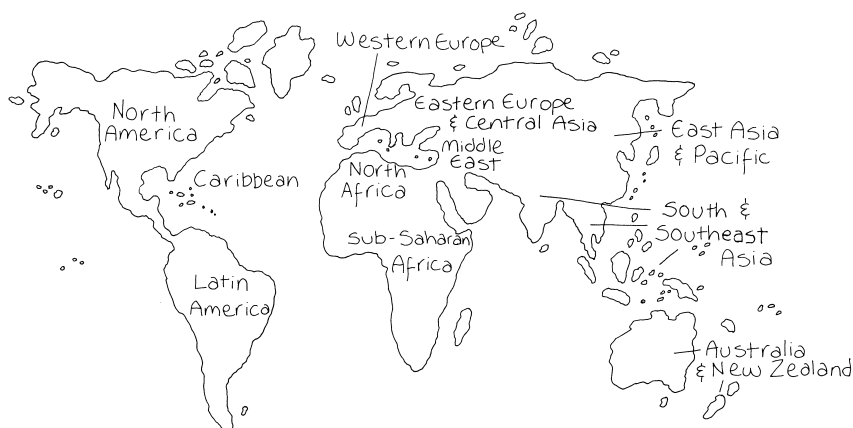 Western Europe
North
America
Eastern Europe
& Central Asia
East Asia
& Pacific
Middle
East
North
Africa
Caribbean
South &
Southeast
Asia
Sub-Saharan
Africa
Latin
America
Australia
& New Zealand